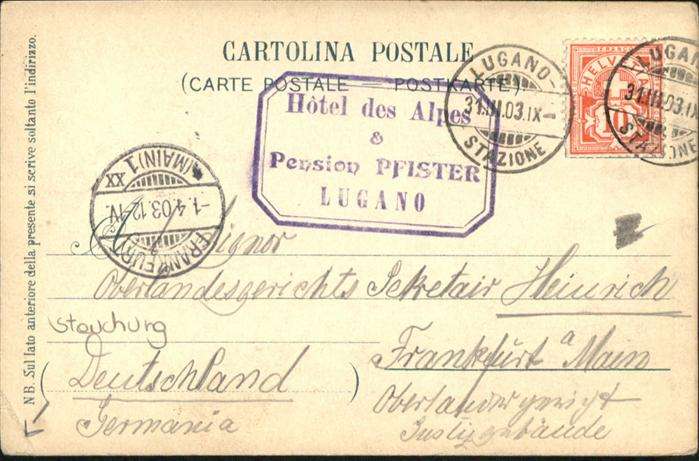 CARTOLINA POSTALE
(CARTE POSTALE — POSTKARTE)
LUGANO-
31.III.03.IX-
STAZIONE
HELVETIA
FRANCO
10
LUGANO-
31.III.03.IX
STAZIONE
Hôtel des Alpes
&
Pension PFISTER
LUGANO
FRANKFURT (MAIN) 1
-1.4.03.12-1V.
XX
Signor
Oberlandesgerichts Sekretair Heinrich
Frankfurt a Main
Oberlandergericht
Justizgebäude
Stauchung
Deutschland
Germania
N B. Sul lato anteriore della presente si scrive soltanto l'indirizzo.